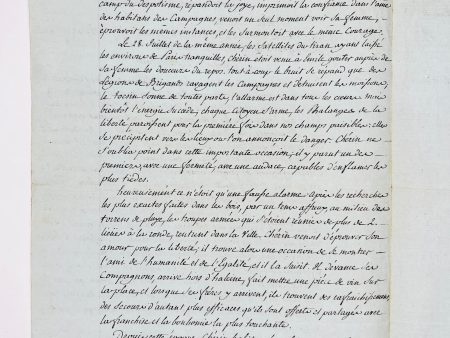 camp du despotisme, répandoit la joye, imprimoit la confiance dans l'ame
des habitans des Campagnes, venoit un seul moment voir sa femme,
éprouvoit les mêmes instances, et les Surmontoit avec le même Courage.
Le 28. Juillet de la même année, les Satellites du tiran ayant laissé
les environs de Paris tranquilles, Chérin étoit venu à Senlis gouter auprès de
Sa femme les douceurs du repos. tout à coup le bruit se répand que des
légions de Brigands ravagent les Campagnes et détruisent les moissons,
le tocsin sonne de toutes parts, l'allarme est dans tous les cœurs mais
bientôt l'energie Succède, chaque Citoyen s'arme, les Phalanges de la
liberté paroissent pour la première fois dans nos champs paisibles: elles
se précipitent vers le lieu où l'on annonçoit le danger. Chérin ne
s'oublia point dans cette importante occasion, il y parut un des
premiers, avec une fermeté, avec une audace, capables d'enflamer les
plus tièdes.
heureusement ce n'étoit qu'une fausse alarme après les recherches
les plus exactes faites dans les bois, par un tems affreux, au milieu des
torrens de pluye, les troupes armées qui s'étoient réunies de plus de 2.
lieües à la ronde, rentrent dans la Ville. Chérin venoit d'éprouver Son
amour pour la liberté, il trouve alors une occasion de se montrer
l'ami de l'humanité et de l'Egalité, et il la Saisit. Il devance Ses
Compagnons arrive hors d'haleine, fait mettre une pièce de vin Sur
la place, et lorsque Ses frères y arrivent, ils trouvent des rafraichissemens
des Secours d'autant plus efficaces qu'ils Sont offerts et partagés avec
la franchise et la bonhomie la plus touchante.
Depuis cette Chérin